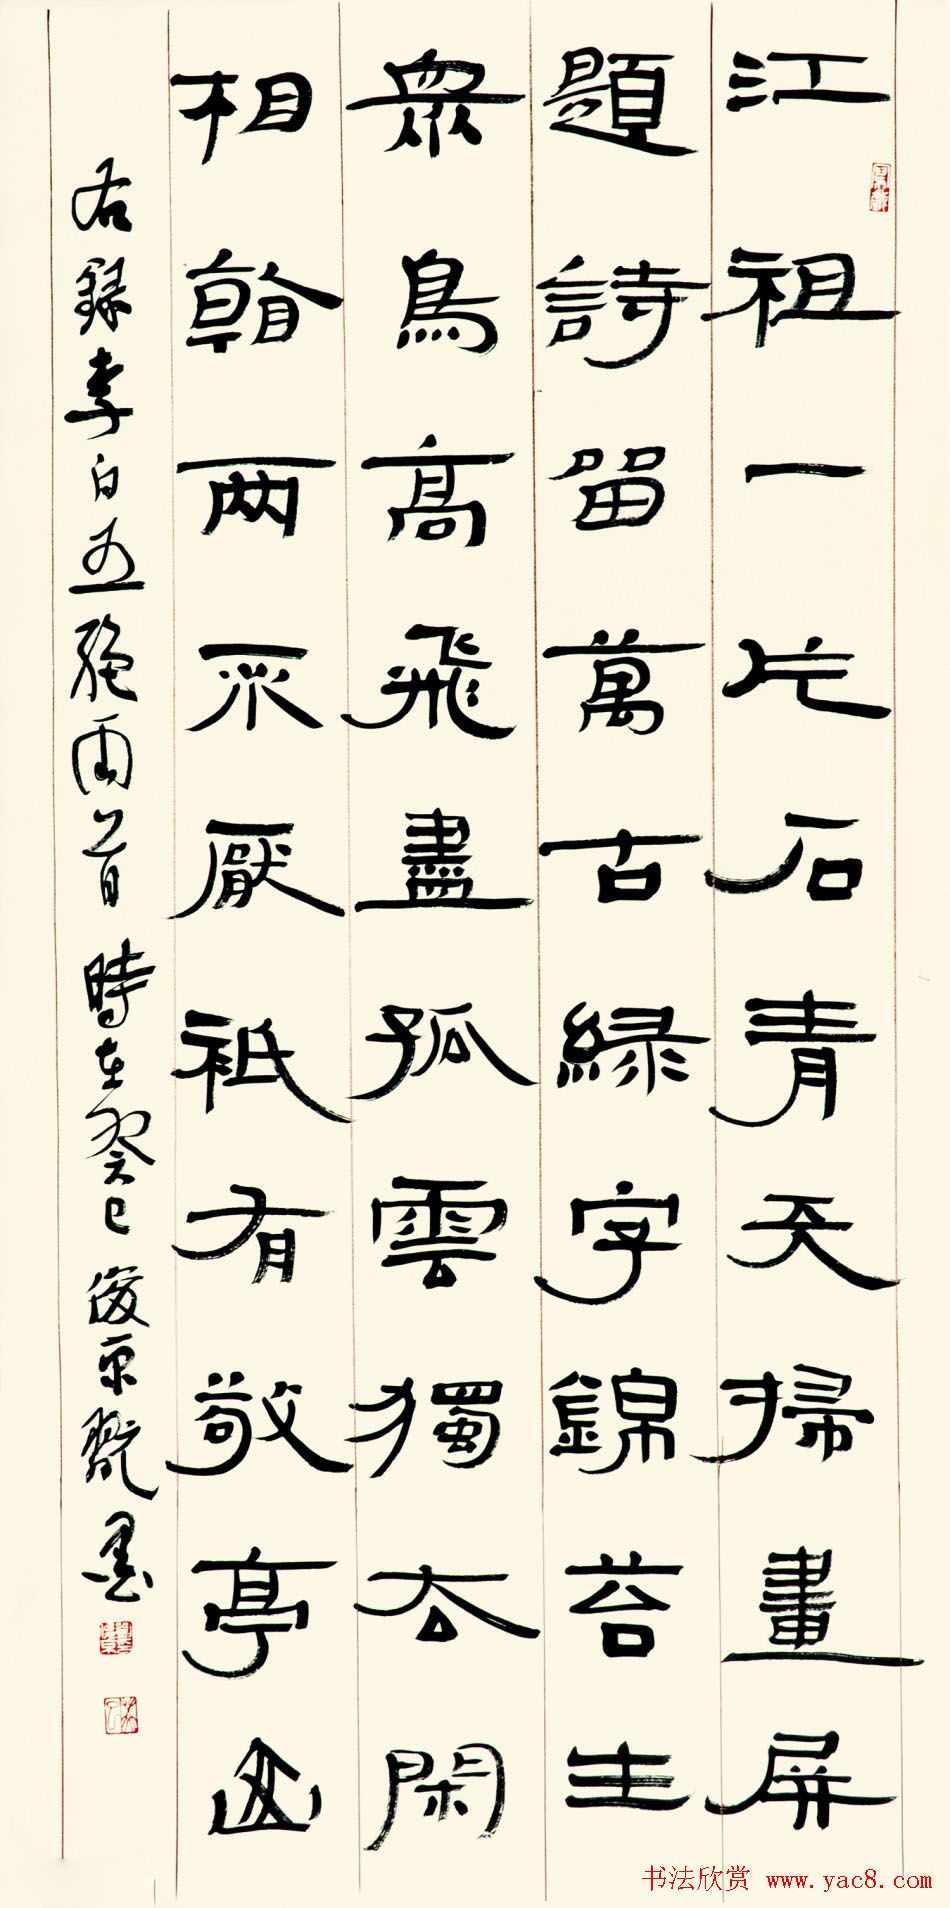 江祖一片石青天掃畫屏
題詩留萬古緑字錦苔生
衆鳥高飛盡孤雲獨去閑
相看两不厭衹有敬亭山
右録李白五絶两首 時在癸巳 俊京戲墨
书法欣赏 www.yac8.com